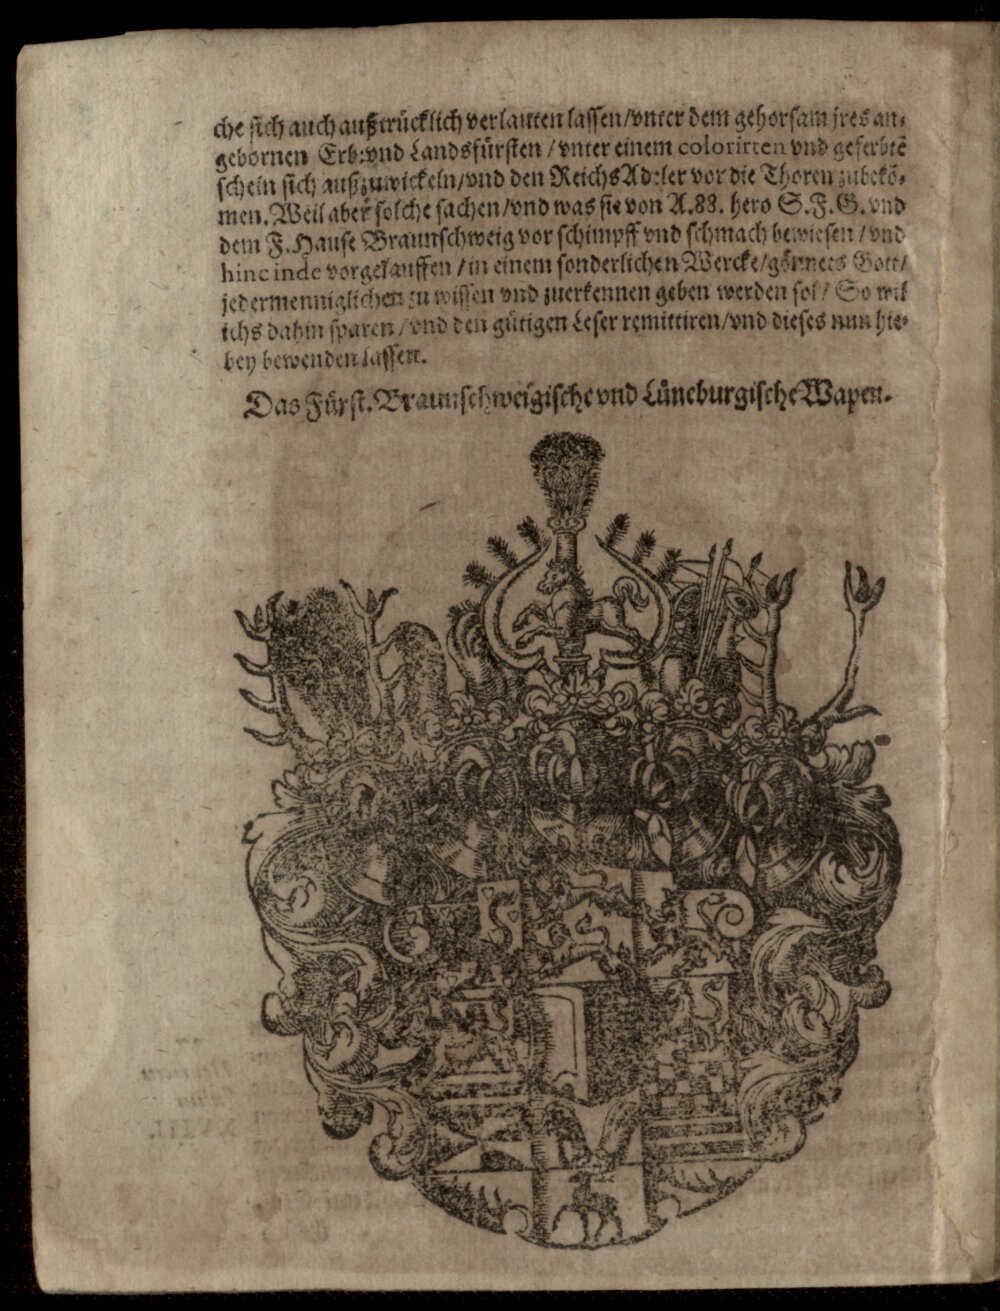 che sich auch außtrücklich verlauten lassen/vnter dem gehorsam jres an-
gebornen Erb: vnd Landsfürsten / vnter einem colorirten vnd geferbtē
schein sich außzuwickeln/vnd den Reichs Adeler vor die Thoren zubekō-
men. Weil aber solche sachen/vnd was sie von A. 88. hero S. F. G. vnd
dem F. Hause Braunschweig vor schimpff vnd schmach bewiesen / vnd
hinc inde vorgelauffen / in einem sonderlichen Wercke/gönnets Gott/
jedermenniglichen zu wissen vnd zuerkennen geben werden sol/ So wil
ichs dahin sparen/vnd den gütigen Leser remittiren/vnd dieses nun hie-
bey bewenden lassen.
Das Fürst. Braunschweigische vnd Lüneburgische Wapen.